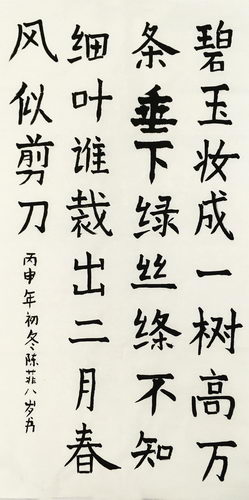 碧玉妆成一树高万
条垂下绿丝绦不知
细叶谁裁出二月春
风似剪刀
丙申年初冬陈菲八岁书